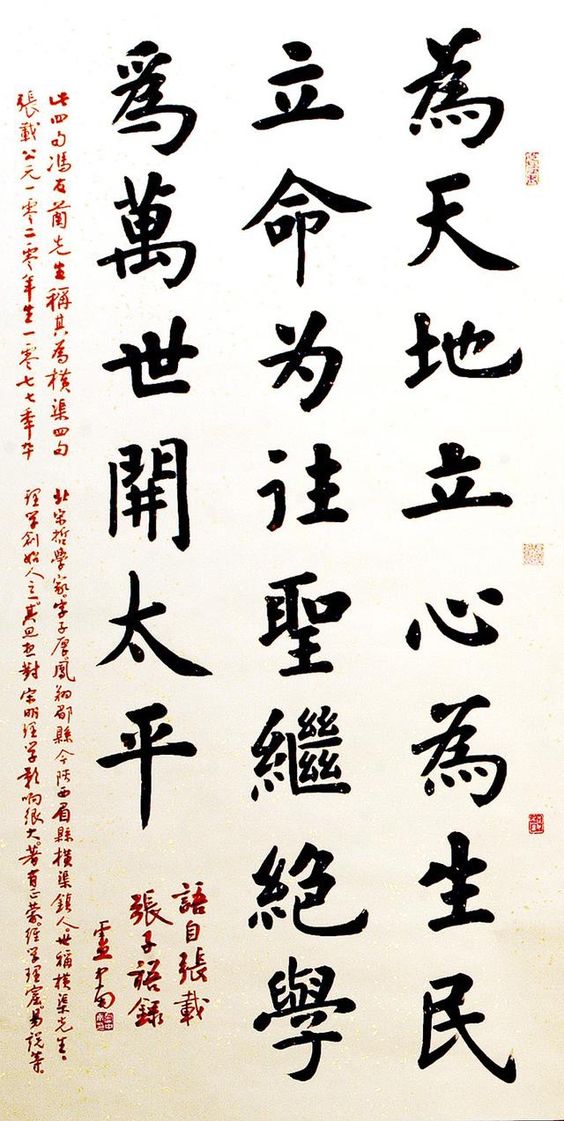 為天地立心為生民
立命为往聖繼絶學
爲萬世開太平
語自張載
張子語録
盧中南
此四句馮友蘭先生稱其為橫渠四句 北宋哲學家。字子厚。鳳翔郿縣今陝西眉縣橫渠鎮人。世稱橫渠先生。
張載公元一零二零年生一零七七年卒 理学創始人之一。其思想對宋明理学影响很大。著有正蒙。經学理窟。易説等。